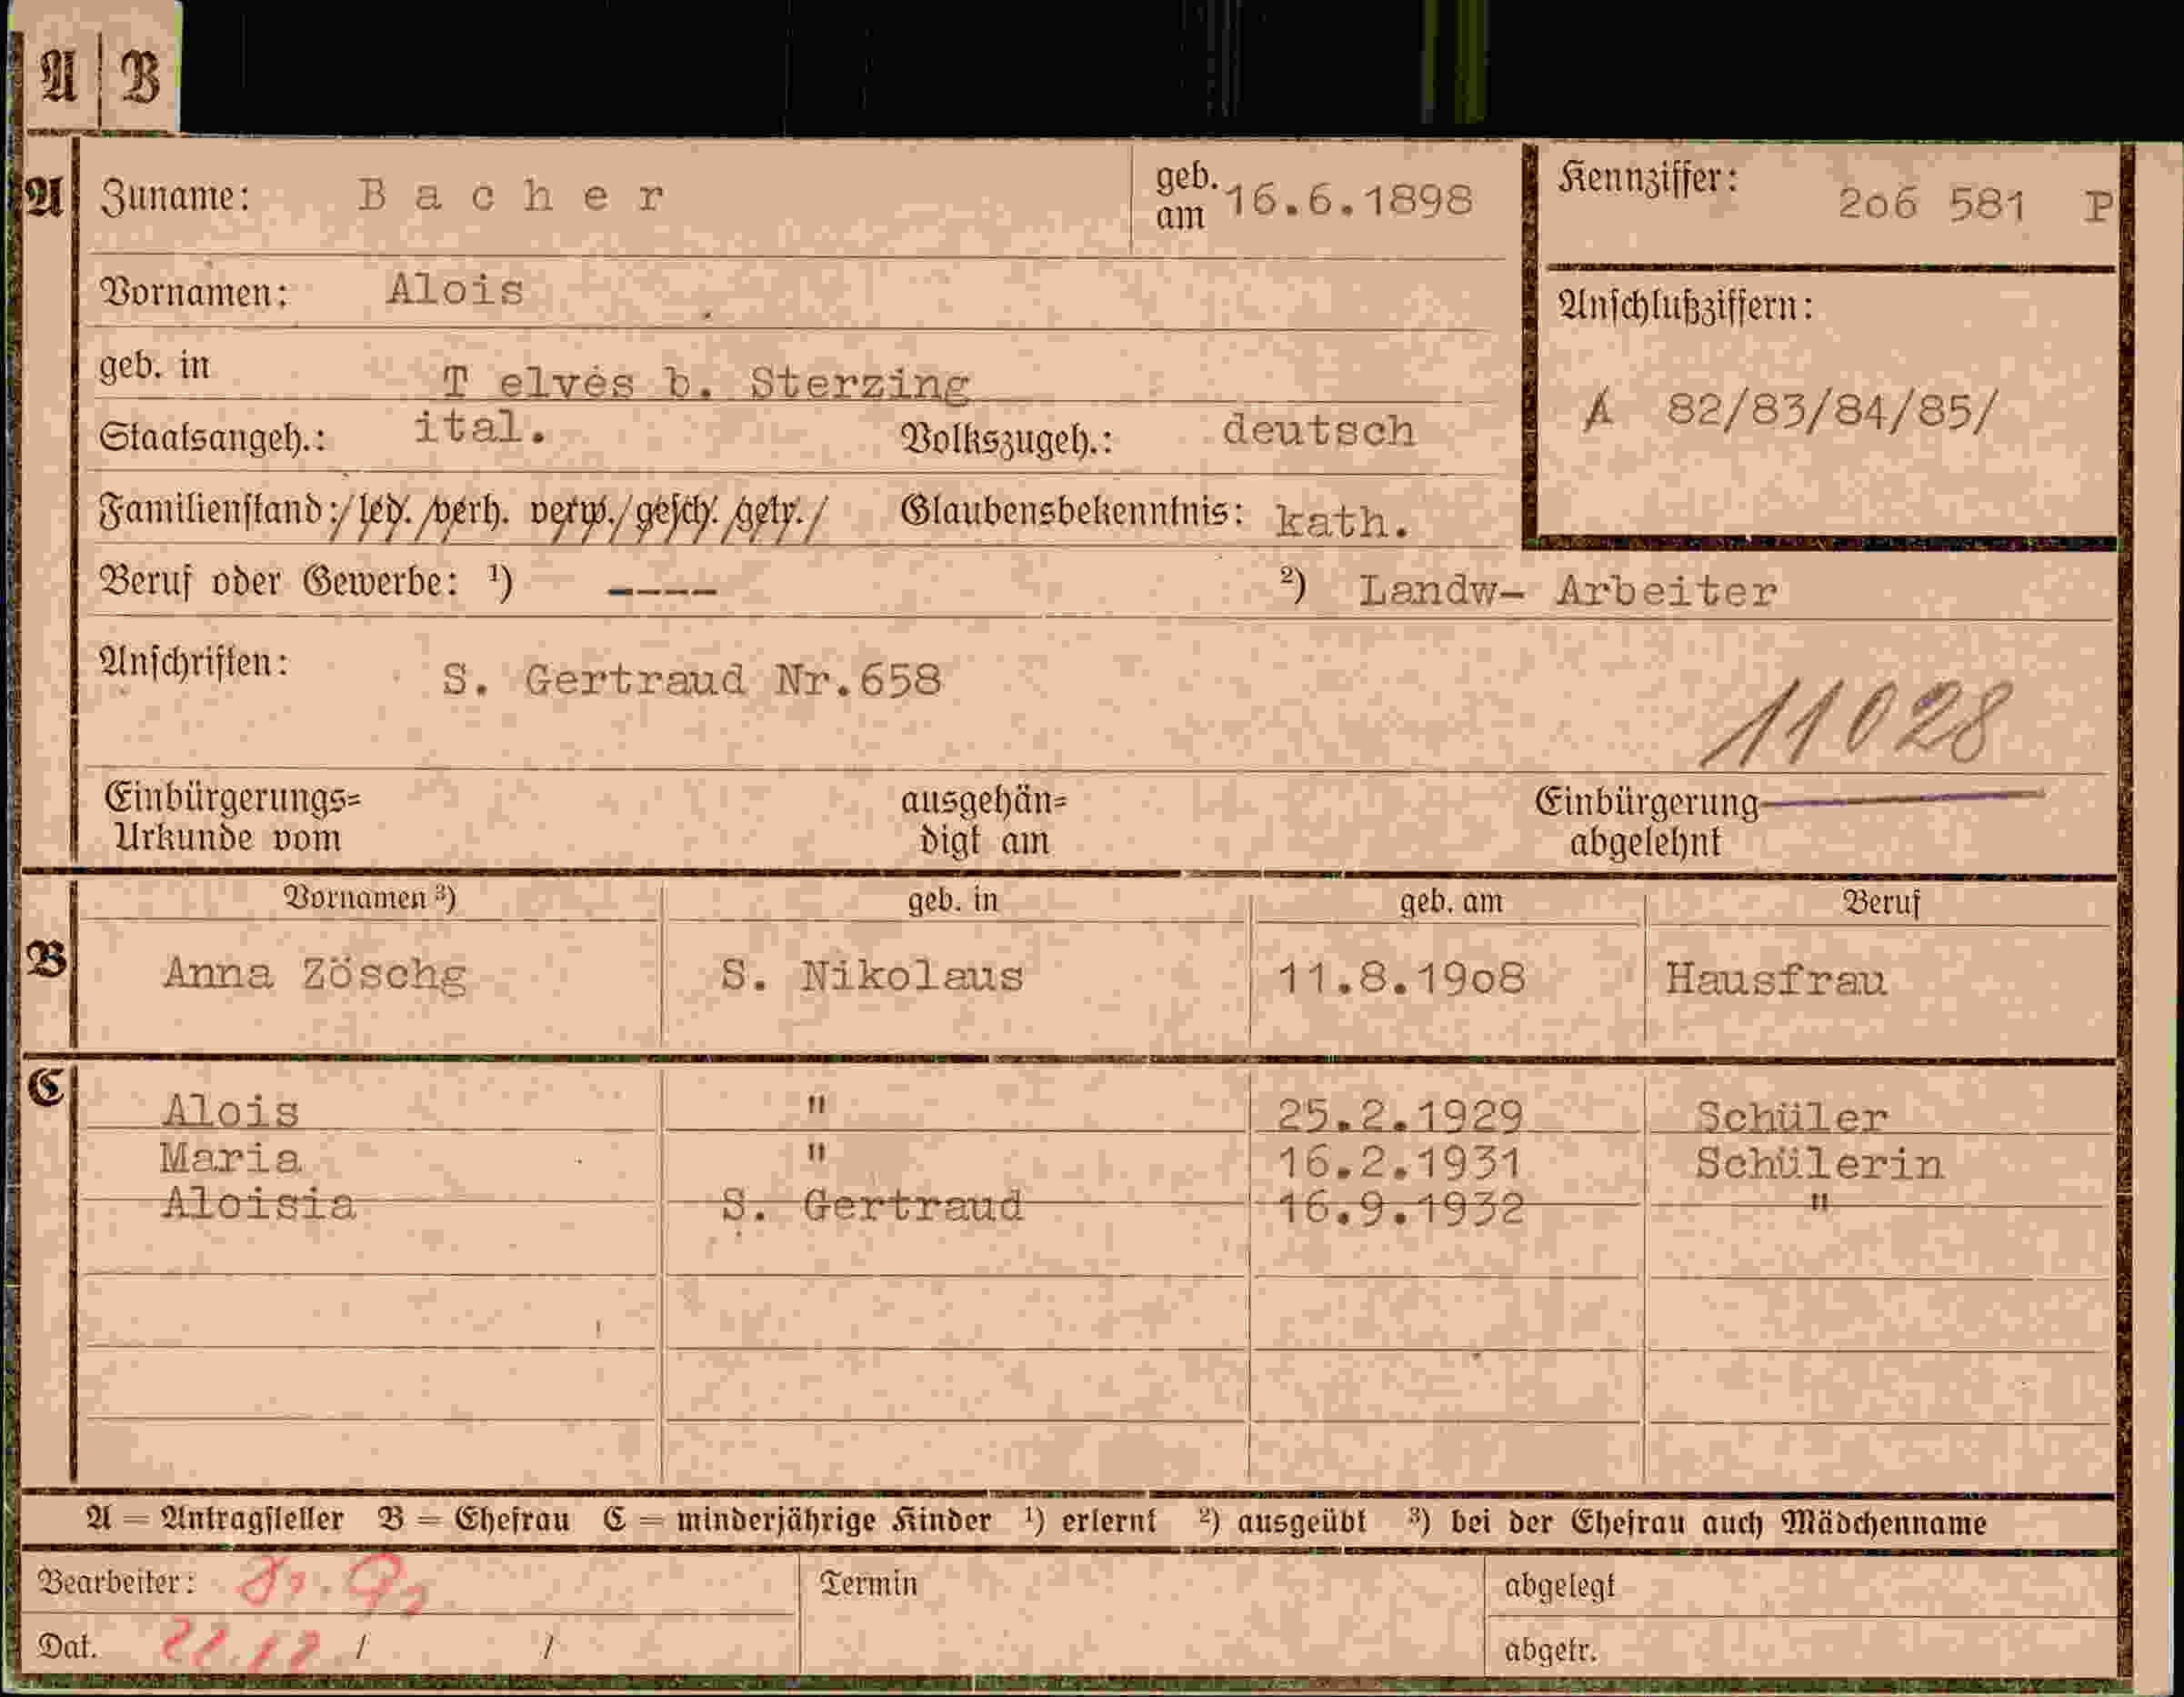 A B
A Zuname: Bacher geb. am 16.6.1898 Kennziffer: 2o6 581 P
Vornamen: Alois Anschlußziffern:
geb. in T elves b. Sterzing A 82/83/84/85/
Staatsangeh.: ital. Volkszugeh.: deutsch
Familienstand:/led./verh. verw./gesch./getr./ Glaubensbekenntnis: kath.
Beruf oder Gewerbe: ¹) ---- ²) Landw- Arbeiter
Anschriften: S. Gertraud Nr.658
11028
Einbürgerungs= ausgehän= Einbürgerung
Urkunde vom digt am abgelehnt
Vornamen ³) geb. in geb. am Beruf
B Anna Zöschg S. Nikolaus 11.8.19o8 Hausfrau
C Alois " 25.2.1929 Schüler
Maria " 16.2.1931 Schülerin
Aloisia S. Gertraud 16.9.1932 "
A = Antragsteller B = Ehefrau C = minderjährige Kinder ¹) erlernt ²) ausgeübt ³) bei der Ehefrau auch Mädchenname
Bearbeiter: Termin abgelegt
Dat. 22.12. / / abgetr.